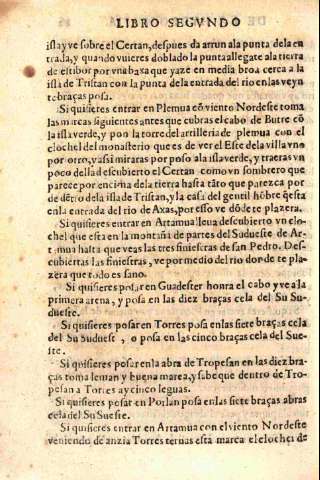 LIBRO SEGVNDO
isla y ve sobre el Certan, despues da arrun ala punta dela en
trada, y quando vuieres doblado la punta allegate ala tierra
de estibor por vna baxa que yaze en media broa cerca a la
isla de Tristan con la punta dela entrada del rio en las veyn
te braças posa.
Si quisieres entrar en Plemua cõ viento Nordeste toma
las marcas siguientes antes que cubras el cabo de Butre cõ
la isla verde, y pon la torre del artilleria de plemua con el
clochel del monasterio que es de ver el Este dela villa vno
por otro, y assi miraras por poso ala isla verde, y traeras vn
poco della descubierto el Certan como vn sombrero que
parece por encima dela tierra hasta tãto que parezca por
de dẽtro dela isla de Tristan, y la casa del gentil hõbre q̃ esta
en la entrada del rio de Axas, por esso ve dõde te plazera.
Si quisieres entrar en Artamua leua descubierto vn clo-
chel que esta en la montaña de partes del Sudueste de Ar-
tamua hasta que veas las tres finiestras de san Pedro. Des-
cubiertas las finiestras, ve por medio del rio donde te pla-
zera que todo es sano.
Si quisieres posar en Guadester honra el cabo y ve a la
primera arena, y posa en las diez braças cela del Su Su-
dueste.
Si quisieres posar en Torres posa en las siete braças cela
del Su Sudueste, o posa en las cinco braças cela del Sue-
ste.
Si quisieres posar en la abra de Tropesan en las diez bra-
ças toma leman y buena marea, y sabe que dentro de Tro-
pesan a Torres ay cinco leguas.
Si quisieres posar en Porlan posa en las siete braças abras
cela del Su Sueste.
Si quisieres entrar en Artamua con el viento Nordeste
veniendo de anzia Torres ternas esta marca el clochel de